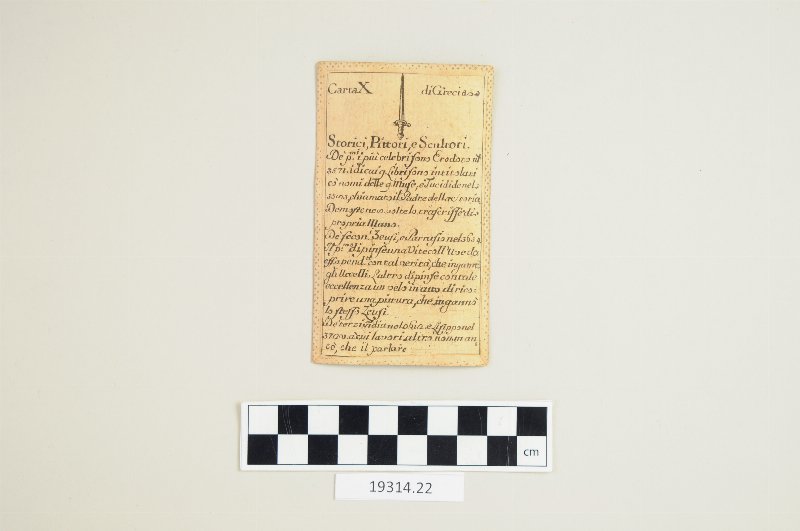 Carta X di Grecia
Storici, Pittori, e Scultori.
De pmi i più celebri sono Erodoto
i di cui 9 Libri sono intitolati
cò nomi delle 9 Muse, e Tucidide nel
chiamato il Padre dell'
Demostene volte lo trascrisse di
propria Mano.
De secon. Zeusi, e Parrasio nel
Il pmo dipinse una Vite coll'Uve da
essa pend.ti con tal verità, che ingannò
gli Uccelli. L'altro dipinse con tale
eccellenza un velo in atto di rico-
prire una pittura, che ingannò
lo stesso Zeusi.
De terzi Fidia nel e Lisippo nel
a cui lavori altro non man
cò, che il parlare
cm
19314.22